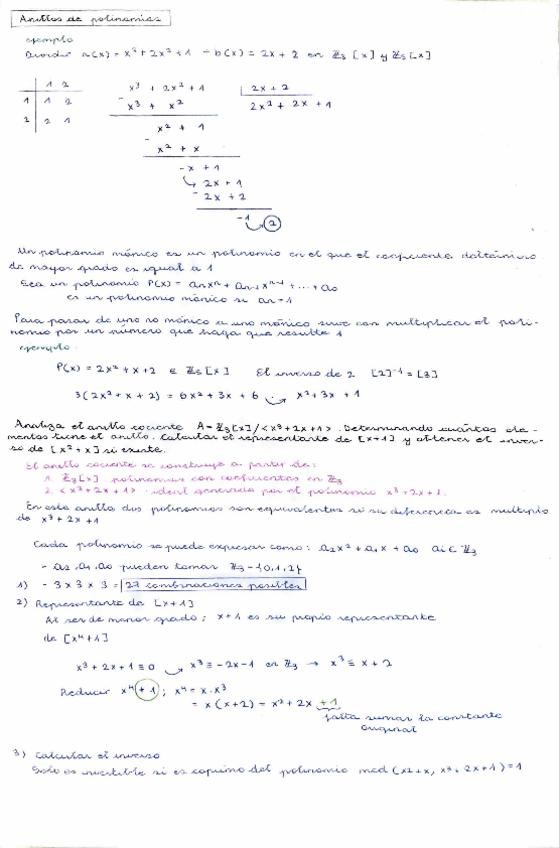 Anillos de polinomios
ejemplo
Dividir a(x) = x³ + 2x² + 1 ÷ b(x) = 2x + 2 en ℤ₃ [x] y ℤ₅ [x]
1 2
1 1 2
2 2 1
x³ + 2x² + 1 | 2x + 2
- x³ + x² 2x² + 2x + 1
x² + 1
- x² + x
-x + 1
2x + 1
- 2x + 2
-1 2
Un polinomio mónico es un polinomio en el que el coeficiente del término
de mayor grado es igual a 1
Sea un polinomio P(x) = aₙxⁿ + aₙ₋₁xⁿ⁻¹ + ... + a₀
es un polinomio mónico si aₙ = 1
Para pasar de uno no mónico a uno mónico sirve con multiplicar el poli-
nomio por un número que haga que resulte 1
ejemplo
P(x) = 2x² + x + 2 ∈ ℤ₅ [x] El inverso de 2 [2]⁻¹ = [3]
3(2x² + x + 2) = 6x² + 3x + 6 x² + 3x + 1
Analiza el anillo cociente A = ℤ₃[x]/<x³+2x+1>. Determinando cuántos ele-
mentos tiene el anillo. Calcular el representante de [x+1] y obtener el inver-
so de [x²+x] si existe.
El anillo cociente se construye a partir de:
1. ℤ₃[x] polinomios con coeficientes en ℤ₃
2. <x³+2x+1> ideal generado por el polinomio x³+2x+1.
En este anillo dos polinomios son equivalentes si su diferencia es múltiplo
de x³+2x+1
Cada polinomio se puede expresar como: a₂x² + a₁x + a₀ aᵢ ∈ ℤ₃
- a₂, a₁, a₀ pueden tomar ℤ₃ = {0,1,2}
1) - 3 x 3 x 3 = 27 combinaciones posibles
2) Representante de [x+1]
Al ser de menor grado; x+1 es su propio representante
de [x⁴+1]
x³ + 2x + 1 ≡ 0 x³ ≡ -2x - 1 en ℤ₃ → x³ ≡ x + 2
Reducir x⁴ + 1; x⁴ = x·x³
= x(x+2) = x² + 2x + 1
falta sumar la constante
original
3) Calcular el inverso
Solo es invertible si es coprimo del polinomio mcd (x²+x, x³+2x+1) = 1